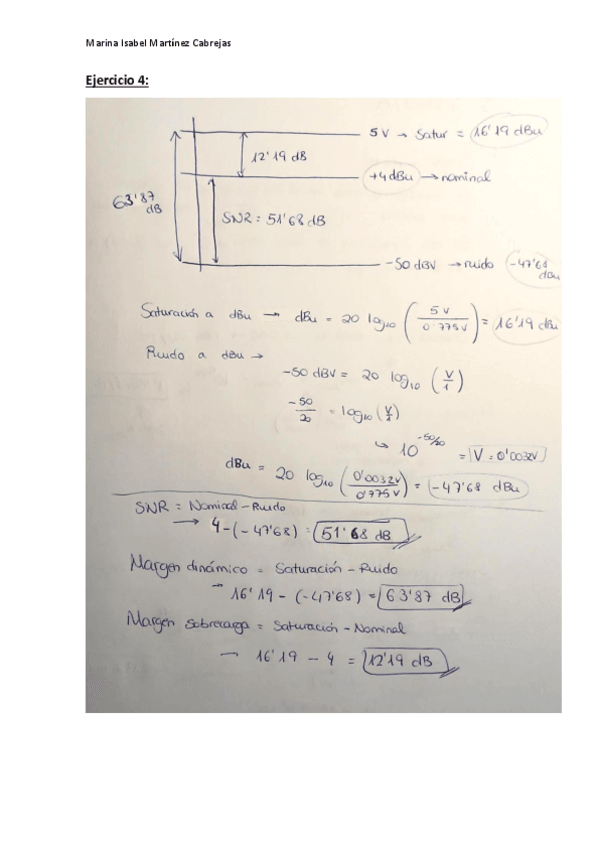 Marina Isabel Martínez Cabrejas
Ejercicio 4:
5 V → Satur = 16'19 dBu
12'19 dB
+4 dBu → nominal
63'87 dB
SNR = 51'68 dB
-50 dBV → ruido -47'68 dBu
Saturación a dBu → dBu = 20 log10 (5 V / 0'775 V) = 16'19 dBu
Ruido a dBu →
-50 dBV = 20 log10 (V/1)
-50/20 = log10 (V/1)
↳ 10^-50/20 = V = 0'0032V
dBu = 20 log10 (0'0032V / 0'775 V) = -47'68 dBu
SNR = Nominal - Ruido
→ 4 - (-47'68) = 51'68 dB
Margen dinámico = Saturación - Ruido
→ 16'19 - (-47'68) = 63'87 dB
Margen sobrecarga = Saturación - Nominal
→ 16'19 - 4 = 12'19 dB